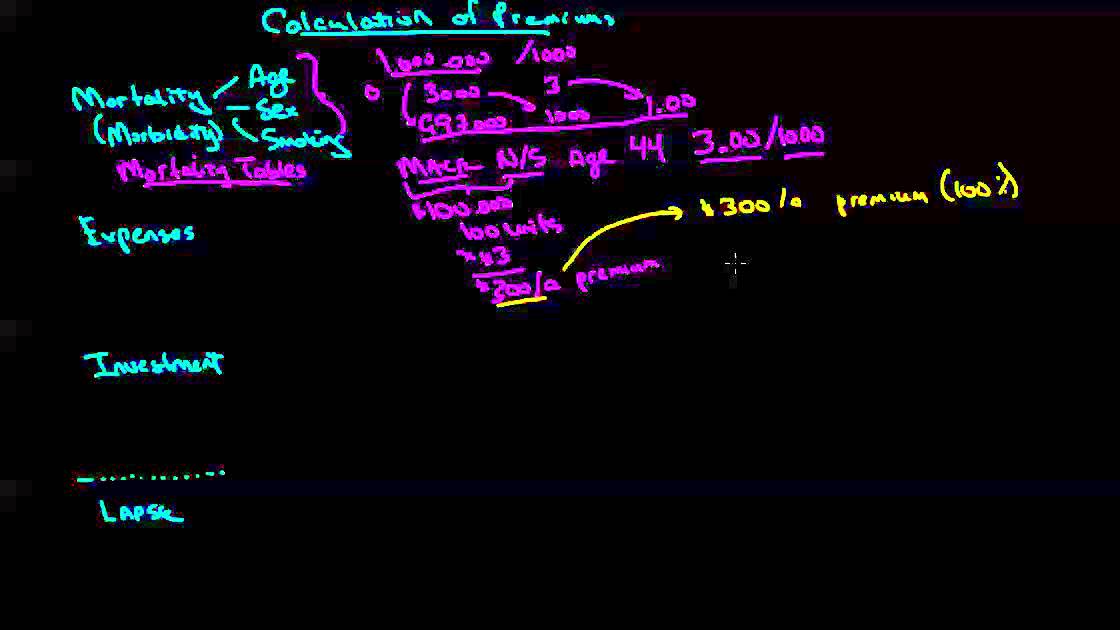 Calculation of Premiums
1,000,000 /1000
Mortality Age
Sex
Smoking
(Morbidity)
Mortality Tables
0 3000 3 1.00
997,000 1000
MALE N/S Age 44 3.00/1000
$100,000
100 units
× $3
$300/a premium
$300/a premium (100%)
Expenses
Investment
LAPSE